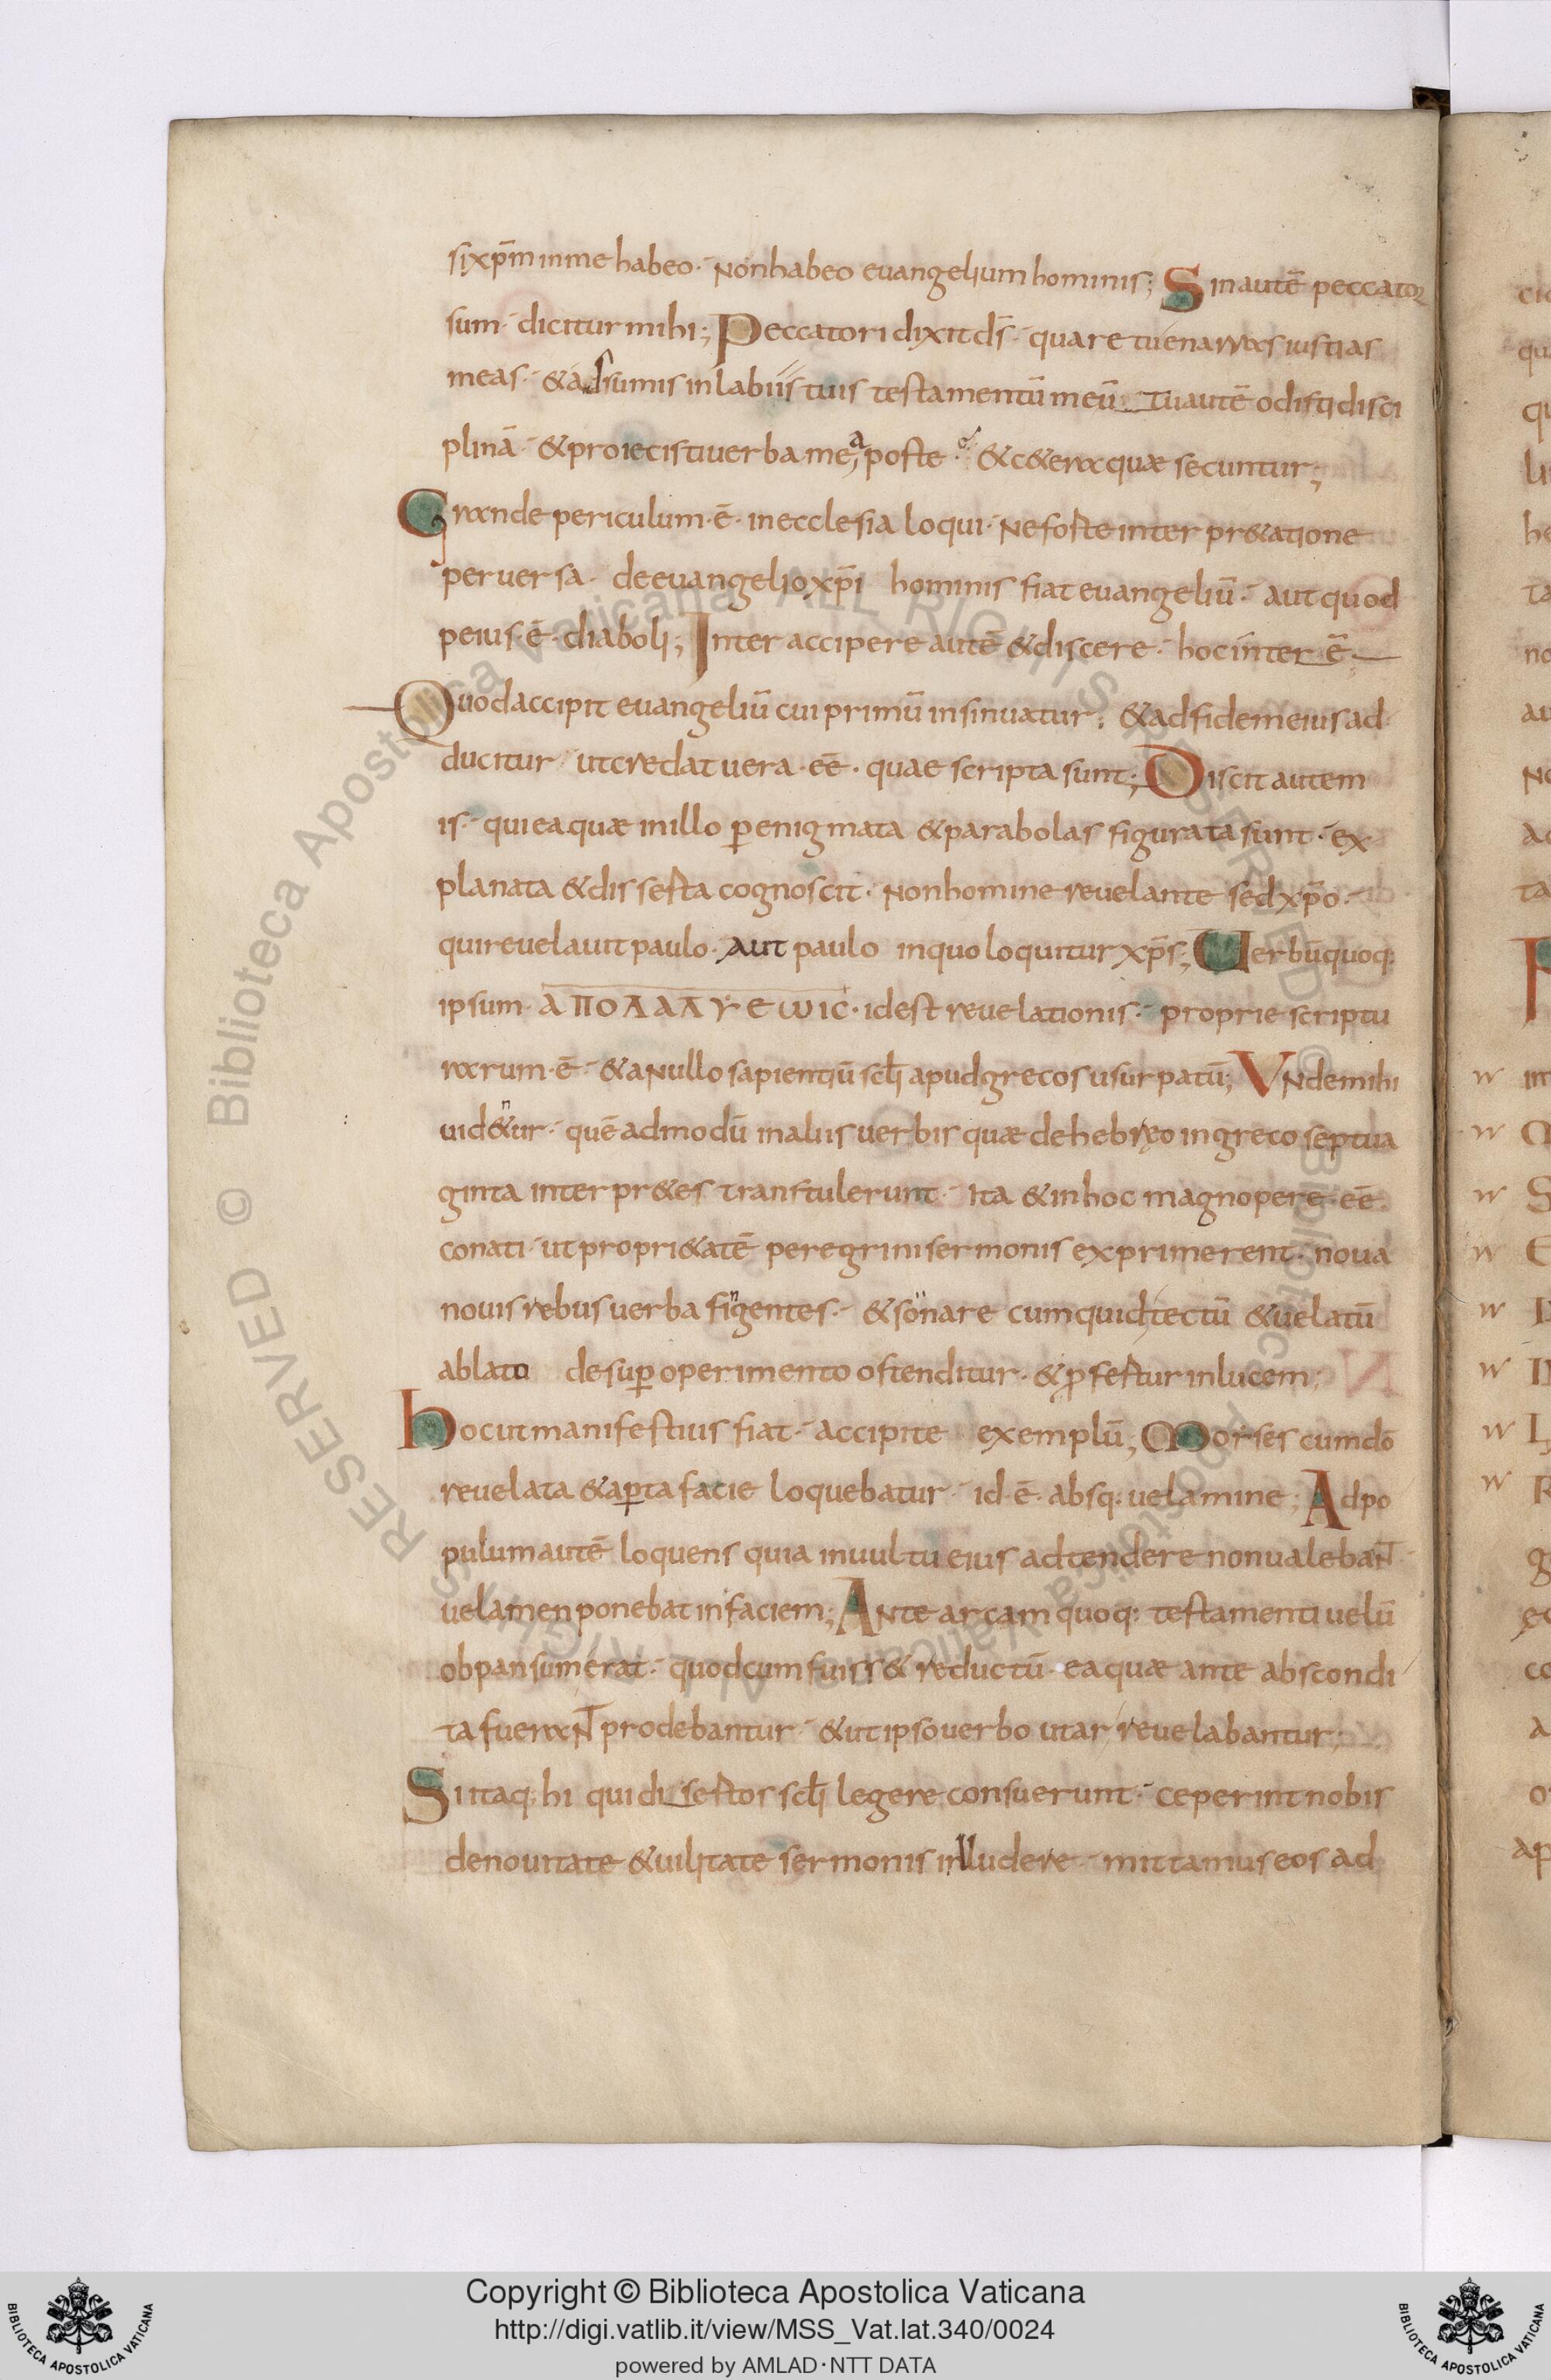 sixp̄m inme habeo· Nonhabeo evangelium hominis; Sin autē peccator
sum· dicitur mihi; Peccatori dixit dś· quare tu enarras iustias
meas· & adsumis in labiis tuis testamentū meū Tu autē odisti disci
plinā· & proiecisti verba mea; poste· & c&era quæ secuntur;
Grande periculum·ē· in ecclesia loqui· Ne foste inter pr&atione
perversa· de evangelio xp̄i hominis fiat evangeliū· aut quod
peius·ē· diaboli; Inter accipere autē & discere· hoc inter ē·
Quod accipit evangeliū cui primū insinuatur; & ad fidem eius ad
ducitur· ut credat vera·eē· quae scripta sunt; Discit autem
is· qui ea quæ in illo p̄ enigmata & parabolas figurata sunt· ex
planata & disserta cognoscit· Non homine revelante sed xp̄o·
qui revelavit paulo· Aut paulo in quo loquitur xp̄s; Verbū quoq;
ipsum· ΑΠΟΛΑΛΥΕωΙC· id est revelationis· proprie scriptu
rarum·ē· & a Nullo sapientiū scłi apud grecos usurpatū; VNde mihi
vid&ur· quē admodū in aliis verbis quæ de hebreo in greco septua
ginta interpr&es transtulerunt· ita & in hoc magnopere·eē·
conati· ut propri&atē peregrini sermonis exprimerent· nova
novis rebus verba fingentes· & sonare cum quid tectū & velatū
ablato desup̄ operimento ostenditur· & p̄fertur in lucem;
Hoc ut manifestius fiat· accipite exemplū; Moises cum dō
revelata & ap̄ta facie loquebatur· id·ē· absq; velamine; Ad po
pulum autē loquens quia in vultu eius adtendere non valebaNT
velamen ponebat in faciem; ANte arcam quoq; testamenti velū
obpansum erat· quod cum fuiss& reductū· ea quæ ante abscondi
ta fueraNT prodebantur· & ut ipso verbo utar revelabantur;
Si itaq; hi qui disertos scłi legere consuerunt· ceperint nobis
de novitate & vilitate sermonis illudere· mittamus eos ad
Copyright © Biblioteca Apostolica Vaticana
http://digi.vatlib.it/view/MSS_Vat.lat.340/0024
powered by AMLAD·NTT DATA
BIBLIOTECA APOSTOLICA VATICANA
BIBLIOTECA APOSTOLICA VATICANA